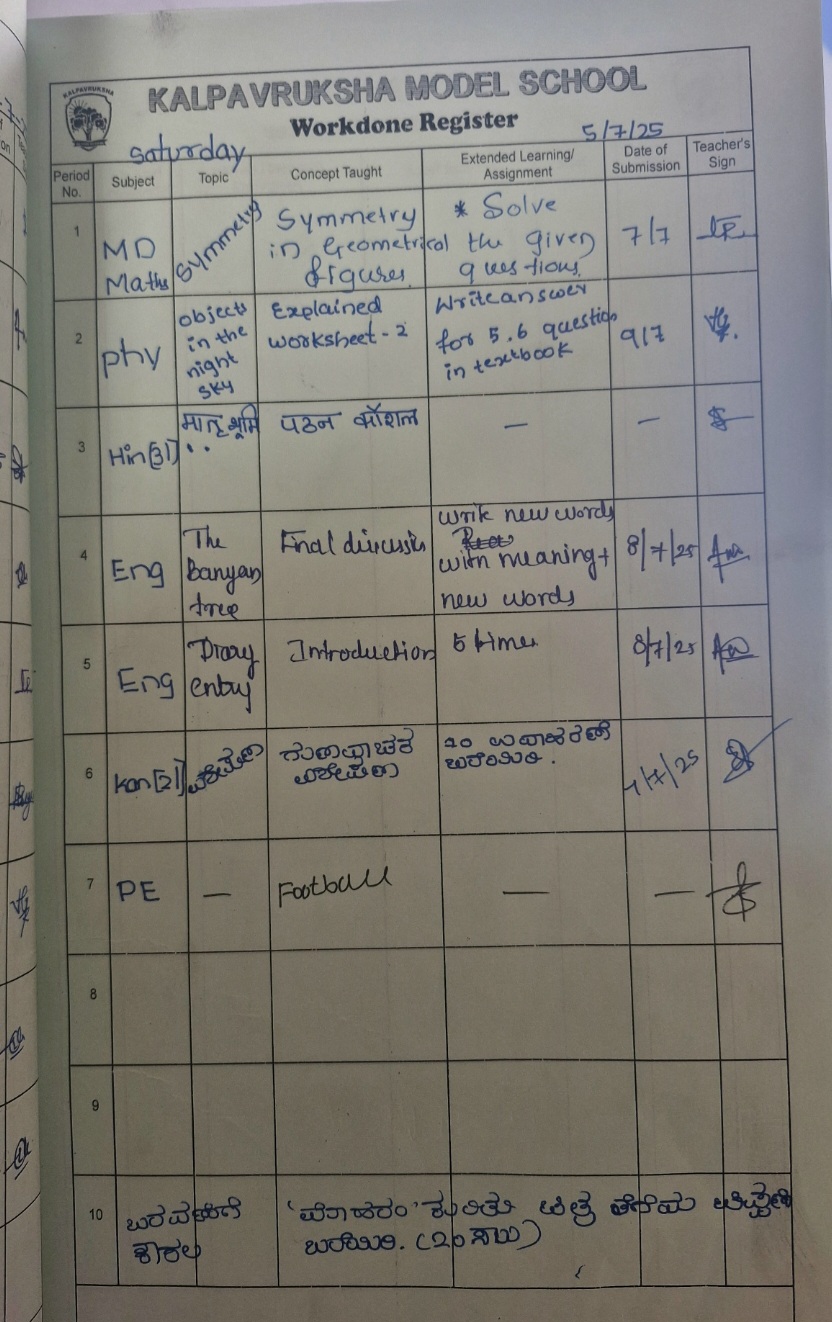 KALPAVRUKSHA
KALPAVRUKSHA MODEL SCHOOL
Workdone Register
Saturday
5/7/25
Period No. Subject Topic Concept Taught Extended Learning/ Assignment Date of Submission Teacher's Sign
1 MD Maths Symmetry Symmetry in Geometrical figures * Solve the given questions 7/7
2 phy objects in the night sky Explained worksheet - 2 Write answer for 5.6 question in textbook 9/7
3 Hin[3] मातृभूमि पठन कौशल — —
4 Eng The Banyan tree Final discussion write new words with meaning + new words 8/7/25
5 Eng Diary entry Introduction 5 times 8/7/25
6 Kan[2] 20 ಬರೆಯಿರಿ. /7/25
7 PE — Football — —
8
9
10 ಬರವಣಿಗೆ ಕೌಶಲ ಕುರಿತು ಚಿತ್ರ
ಬರೆಯಿರಿ. (20 ಸಾಲು)